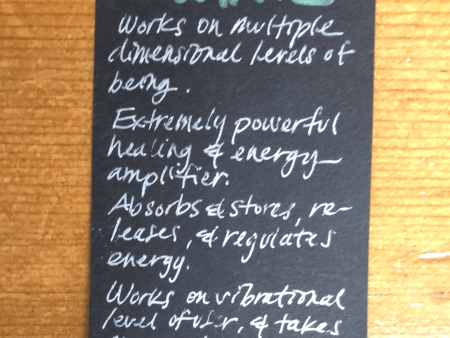 Works on multiple
dimensional levels of
being.
Extremely powerful
healing & energy
amplifier.
Absorbs & stores, re-
leases, & regulates
energy.
Works on vibrational
level of user, & takes